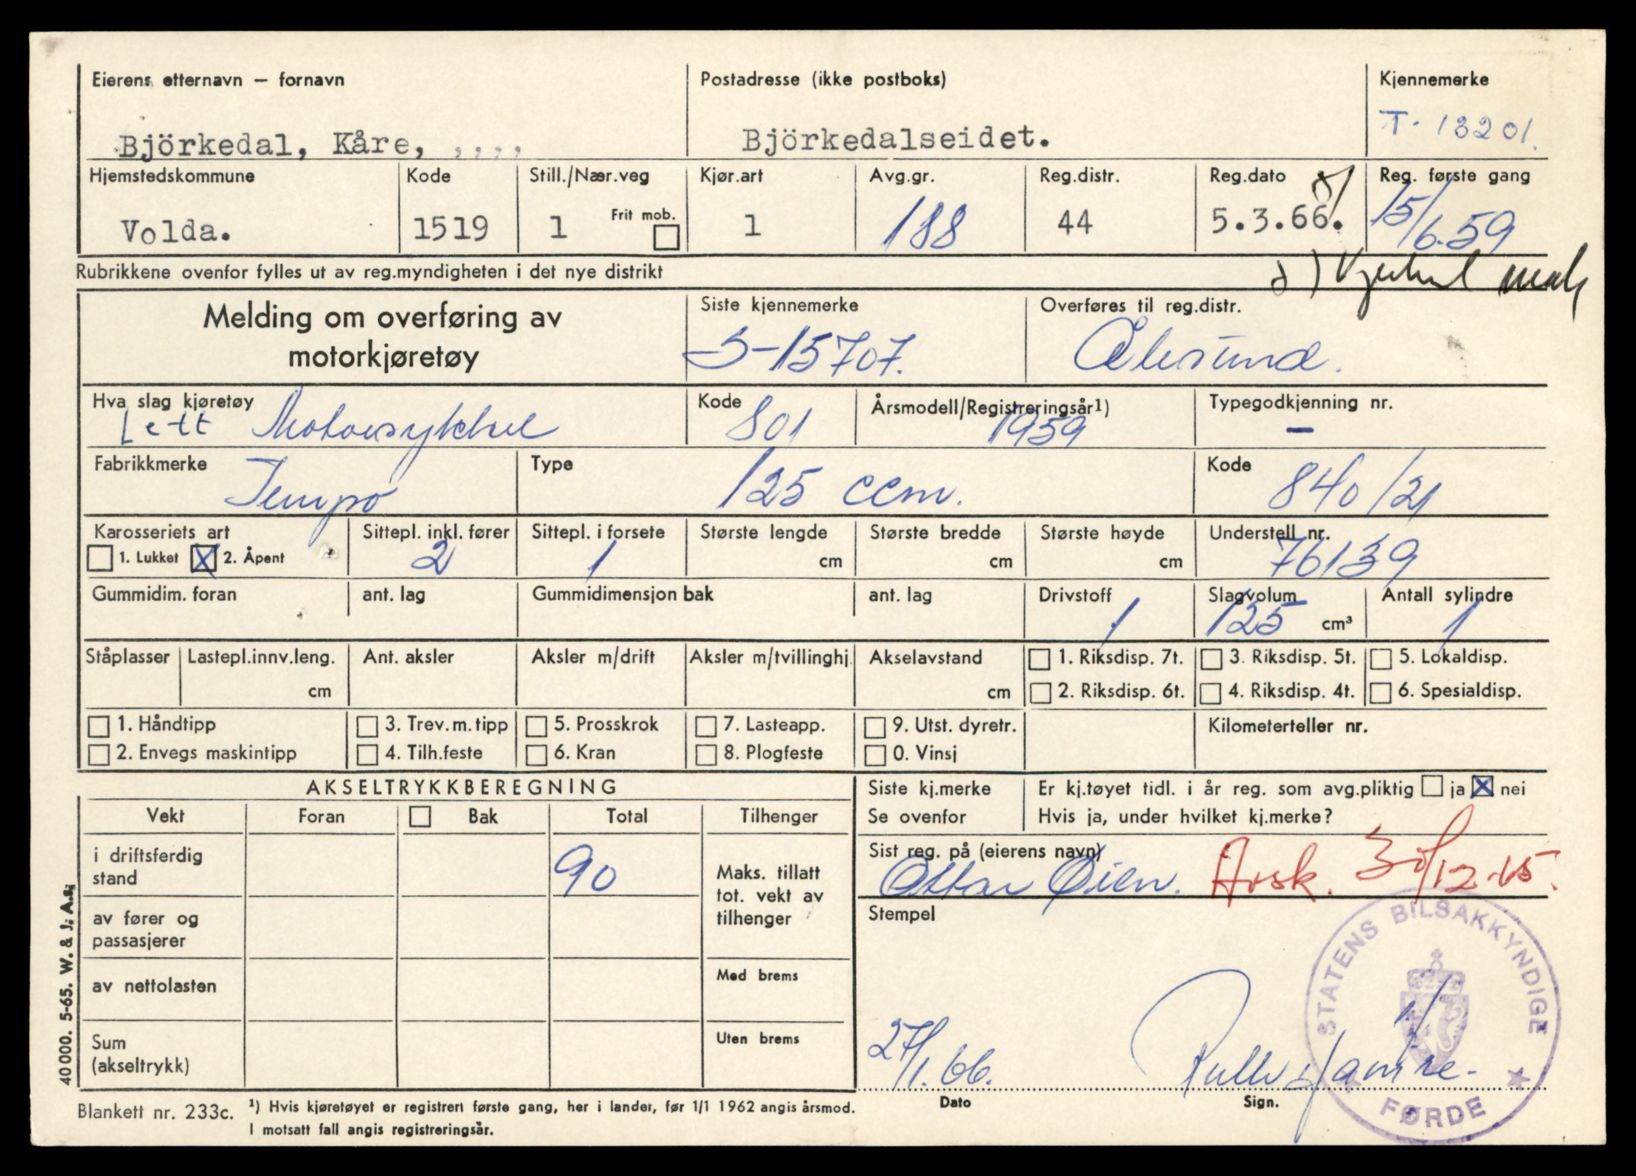 Eierens etternavn — fornavn
Postadresse (ikke postboks)
Kjennemerke
Björkedal, Kåre, , , , ,
Björkedalseidet.
T-13201.
Hjemstedskommune
Kode
Still./Nær.veg
Kjør.art
Avg.gr.
Reg.distr.
Reg.dato
Reg. første gang
Volda.
1519
1
Frit mob.
1
188
44
5.3.66.
15/6.59
Rubrikkene ovenfor fylles ut av reg.myndigheten i det nye distrikt
Melding om overføring av
motorkjøretøy
Siste kjennemerke
S-15707.
Overføres til reg.distr.
Ålesund.
Hva slag kjøretøy
Lett Motorsykkel
Kode
801
Årsmodell/Registreringsår1)
1959
Typegodkjenning nr.
—
Fabrikkmerke
Tempo
Type
125 ccm.
Kode
840/21
Karosseriets art
1. Lukket
2. Åpent
Sittepl. inkl. fører
2
Sittepl. i forsete
1
Største lengde
cm
Største bredde
cm
Største høyde
cm
Understell nr.
76139
Gummidim. foran
ant. lag
Gummidimensjon bak
ant. lag
Drivstoff
1
Slagvolum
125 cm³
Antall sylindre
1
Ståplasser
Lastepl.innv.leng.
cm
Ant. aksler
Aksler m/drift
Aksler m/tvillinghj.
Akselavstand
cm
1. Riksdisp. 7t.
3. Riksdisp. 5t.
5. Lokaldisp.
2. Riksdisp. 6t.
4. Riksdisp. 4t.
6. Spesialdisp.
1. Håndtipp
3. Trev.m.tipp
5. Prosskrok
7. Lasteapp.
9. Utst. dyretr.
Kilometerteller nr.
2. Envegs maskintipp
4. Tilh.feste
6. Kran
8. Plogfeste
0. Vinsj
AKSELTRYKKBEREGNING
Siste kj.merke
Se ovenfor
Er kj.tøyet tidl. i år reg. som avg.pliktig ja nei
Hvis ja, under hvilket kj.merke?
Vekt
Foran
Bak
Total
Tilhenger
i driftsferdig
stand
90
Maks. tillatt
tot. vekt av
tilhenger
Sist reg. på (eierens navn)
Ottar Øien.
Avsk. 30/12-65.
av fører og
passasjerer
Stempel
STATENS BILSAKKYNDIGE
FØRDE
av nettolasten
Med brems
Sum
(akseltrykk)
Uten brems
27/1.66.
Dato
Sign.
40 000. 5-65. W. & J. A.s.
Blankett nr. 233c.
1) Hvis kjøretøyet er registrert første gang, her i landet, før 1/1 1962 angis årsmod.
I motsatt fall angis registreringsår.